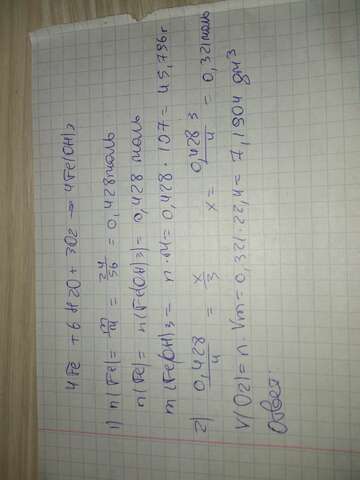 4Fe + 6H2O + 3O2 → 4Fe(OH)3
1) n(Fe) = m/M = 24/56 = 0,428 моль
n(Fe) = n(Fe(OH)3) = 0,428 моль
m(Fe(OH)3 = n·M = 0,428·107 = 45,796 г
2) 0,428/4 = x/3 x = 0,428·3/4 = 0,321 моль
V(O2) = n·Vm = 0,321·22,4 = 7,1904 дм3
Ответ: